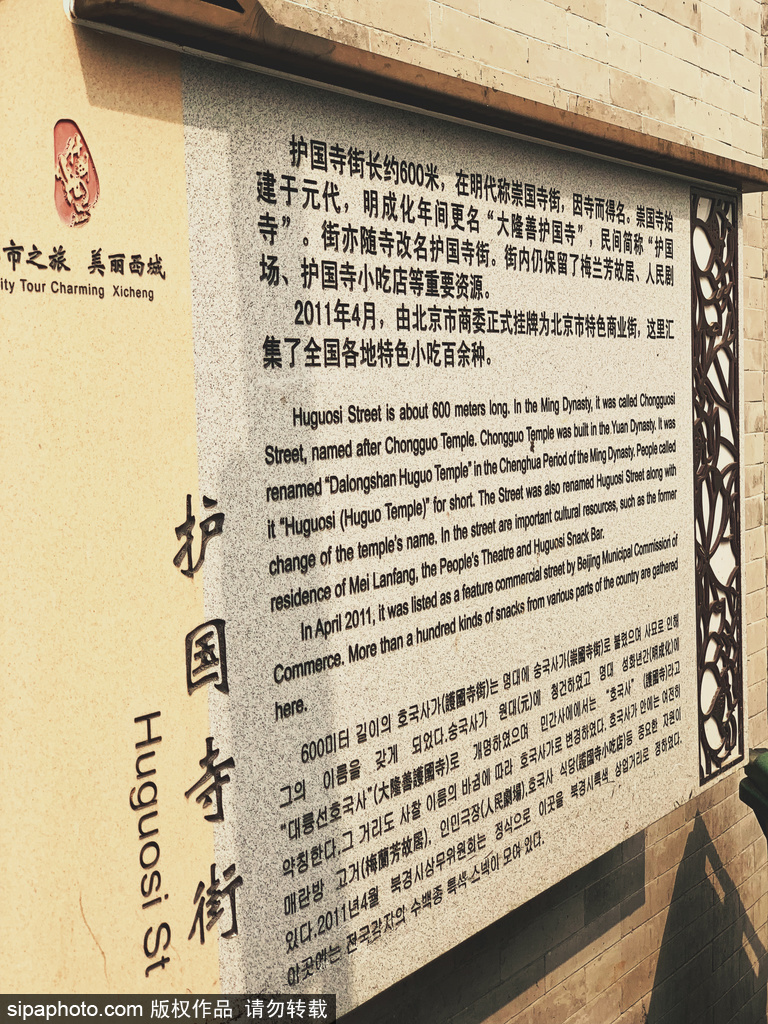 市之旅 美丽西城
ity Tour Charming Xicheng
护国寺街
Huguosi St
护国寺街长约600米，在明代称崇国寺街，因寺而得名。崇国寺始
建于元代，明成化年间更名“大隆善护国寺”，民间简称“护国
寺”。街亦随寺改名护国寺街。街内仍保留了梅兰芳故居、人民剧
场、护国寺小吃店等重要资源。
2011年4月，由北京市商委正式挂牌为北京市特色商业街，这里汇
集了全国各地特色小吃百余种。
Huguosi Street is about 600 meters long. In the Ming Dynasty, it was called Chongguosi
Street, named after Chongguo Temple. Chongguo Temple was built in the Yuan Dynasty. It was
renamed “Dalongshan Huguo Temple” in the Chenghua Period of the Ming Dynasty. People called
it “Huguosi (Huguo Temple)” for short. The Street was also renamed Huguosi Street along with
change of the temple's name. In the street are important cultural resources, such as the former
residence of Mei Lanfang, the People's Theatre and Huguosi Snack Bar.
In April 2011, it was listed as a feature commercial street by Beijing Municipal Commission of
Commerce. More than a hundred kinds of snacks from various parts of the country are gathered
here.
600미터 길이의 호국사가(護國寺街)는 명대에 숭국사가(崇國寺街)로 불렸으며 사묘로 인해
그의 이름을 갖게 되었다.숭국사가 원대(元)에 청건하였고 명대 성화년간(明成化)에
“대륭선호국사”(大隆善護國寺)로 개명하였으며 민간사에에서는 “호국사” (護國寺)라고
약칭한다.그 거리도 사찰 이름의 바겸에 따라 호국사가로 변경하였다. 호국사가 안에는 여전히
매란방 고거(梅蘭芳故居), 인민극장(人民劇場),호국사 식당(護國寺小吃店)등 중요한 자원이
있다.2011년4월 북경시상무위원회는 정식으로 이곳을 북경시특색 상업거리로 정하였다.
이곳에는 전국각자의 수백종 특색 스낵이 모여 있다.
sipaphoto.com 版权作品 请勿转载